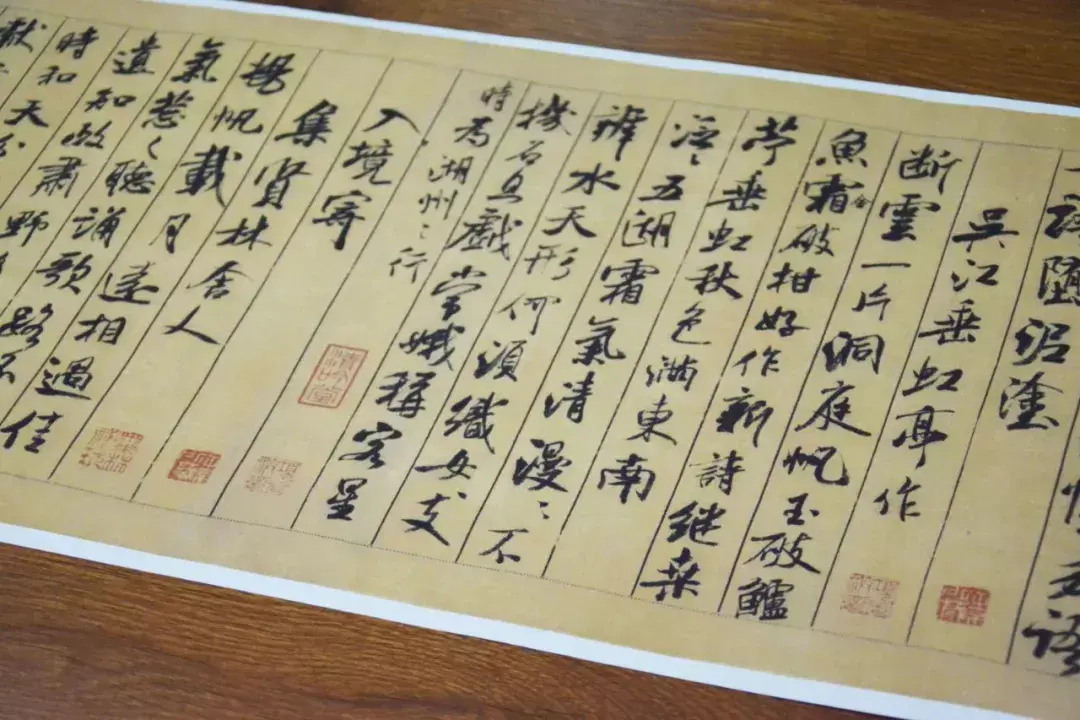 慎勿語
一語墮泥塗
吳江垂虹亭作
断雲一片洞庭帆玉破鱸
魚霜金破柑好作新詩継桑
苧垂虹秋色滿東南
泛〻五湖霜氣清漫〻不
辨水天形何須織女支
機石且戲常娥稱客星
時為湖州之行
入境寄
集賢林舍人
揚帆載月遠相過佳
氣葱〻聽誦歌路不
遺知政肅野
時和天分
獻